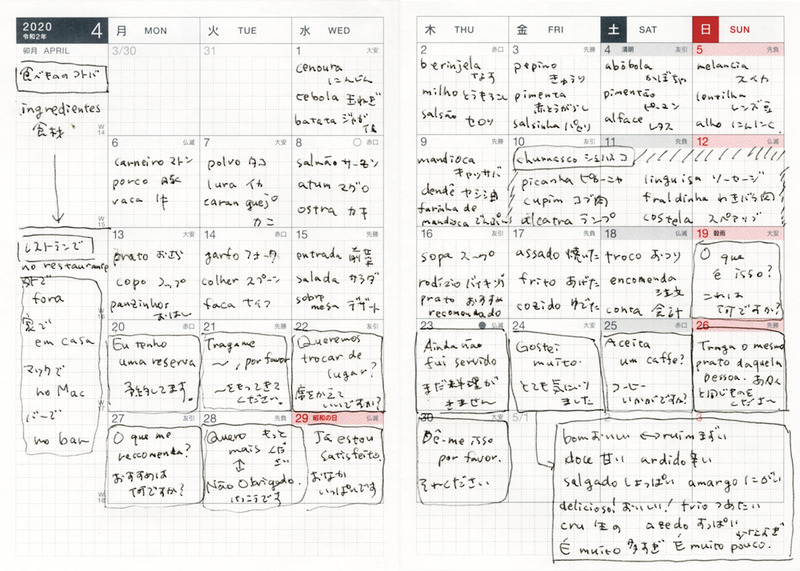 2020
令和2年
4
月 MON
火 TUE
水 WED
木 THU
金 FRI
土 SAT
日 SUN
卯月 APRIL
食べもののコトバ
ingredientes
食材
W14
3/30
31
1 大安
cenoura
にんじん
cebola 玉ねぎ
batata ジャガ
2 赤口
berinjela
なす
milho とうもろこし
salsão セロリ
3 先勝
pepino
きゅうり
pimenta
赤とうがらし
salsinha パセリ
4 清明 友引
abóbola
かぼちゃ
pimentão
ピーマン
alface
レタス
5 先負
melancia
スイカ
lentilha
レンズ豆
alho にんにく
W15
6 仏滅
carneiro マトン
porco 豚
vaca 牛
7 大安
polvo タコ
lura イカ
caranguejo
カニ
8 仏滅
salmão サーモン
atum マグロ
ostra カキ
9 赤口
mandioca
キャッサバ
dendê ヤシ油
farinha de
mandioca
10 友引
churrasco シュハスコ
picanha ピッカーニャ
cupim コブ肉
alcatra ランプ
11 先負
12 仏滅
linguisa ソーセージ
fraldinha わきばら肉
costela スペアリブ
レストランで
no restaurante
外で
fora
家で
em casa
マックで
no Mac
バーで
no bar
W16
13 大安
prato おさら
copo コップ
pauzinhos
おはし
14 赤口
garfo フォーク
colher スプーン
faca ナイフ
15 先勝
entrada 前菜
salada サラダ
sobre
mesa デザート
16 友引
sopa スープ
rodízio バイキング
prato おすすめ
recomendo
17 先負
assado 焼いた
frito あげた
cozido ゆでた
18 仏滅
troco おつり
encomenda
注文
conta 会計
19 穀雨 大安
O que
é isso?
これは
何ですか?
W17
20 赤口
Eu tenho
uma reserva
予約してます。
21 先勝
Tragame
〜, por favor
〜をもってきて
ください。
22 友引
Queremos
trocar de
lugar?
席をかえて
いいですか?
23 仏滅
Ainda não
fui servido
まだ料理が
きません
24 大安
Gostei
muito.
とても気にいり
ました
25 赤口
Aceita
um caffe?
コーヒー
いかがですか?
26 先勝
Traga o mesmo
prato daquela
pessoa. あの人
と同じものを
くださ〜い
W18
27 友引
O que me
reccomenda?
おすすめは
何ですか?
28 先負
Quero もっと
mais ください
Não Obrigado.
けっこうです
29 昭和の日 仏滅
Já estou
satisfeito.
おなか
いっぱいです
30 大安
Dê-me isso
por favor.
それください
5/1
2
3
bom おいしい ↔ ruim まずい
doce 甘い ardido 辛い
salgado しょっぱい amargo にがい
delicioso! おいしい! frio つめたい
cru 生の azedo すっぱい
É muito 多すぎ É muito pouco.